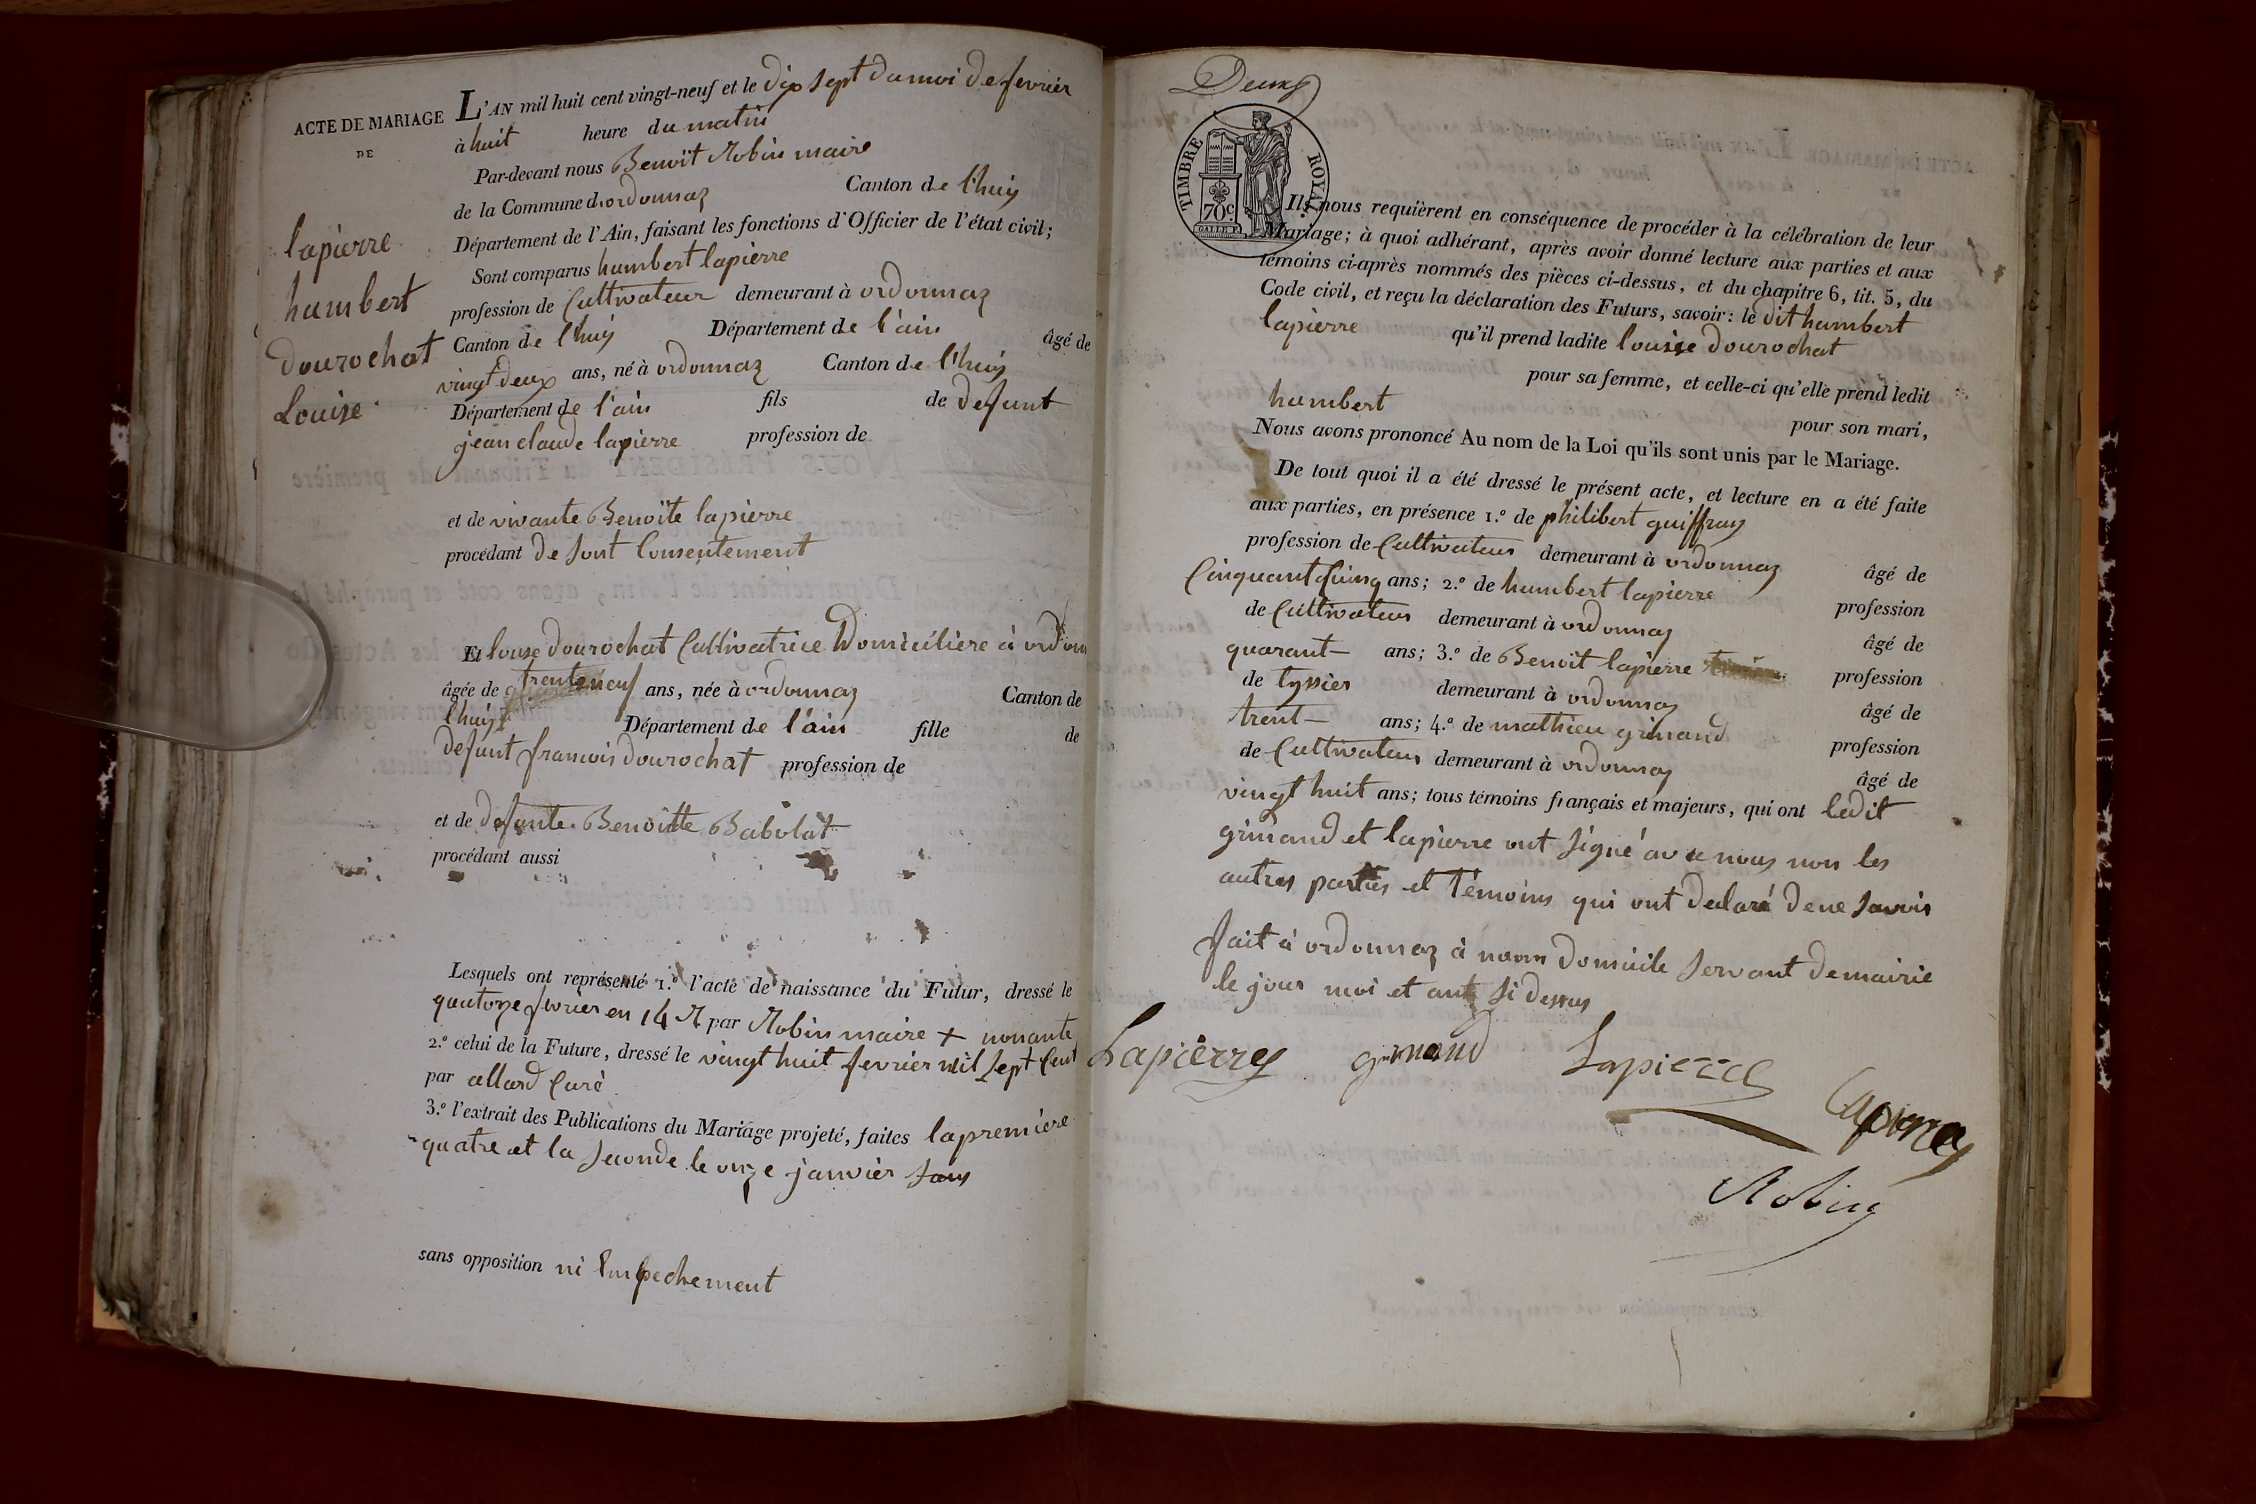 ACTE DE MARIAGE
DE
lapierre
humbert
dourochat
Louise
L'AN mil huit cent vingt-neuf et le dix sept du moi de fevrier
à huit heure du matin
Par-devant nous Benoit Robin maire
de la Commune d'ordonnaz Canton de l'huis
Département de l'Ain, faisant les fonctions d'Officier de l'état civil;
Sont comparus humbert lapierre
profession de Cultivateur demeurant à ordonnaz
Canton de l'huis Département de l'ain âgé de
vingt deux ans, né à ordonnaz Canton de l'huis
Département de l'ain fils de defunt
jean claude lapierre profession de
et de vivante Benoîte lapierre
procédant de sont Consentement
Et louise dourochat Cultivatrice Domicilière à ordon
âgée de trente neuf ans, née à ordonnaz Canton de
l'huis Département de l'ain fille de
defunt francois dourochat profession de
et de defunte Benoitte Babolat
procédant aussi
Lesquels ont représenté 1.º l'acte de naissance du Futur, dressé le
quatorze fevrier en 14 par Robin maire + nonante
2.º celui de la Future, dressé le vingt huit fevrier mil sept Cent
par allard Curé
3.º l'extrait des Publications du Mariage projeté, faites la premiere
quatre et la seconde le onze janvier sans
sans opposition ni Empechement
Deux
TIMBRE ROYAL
70c.
Ils nous requièrent en conséquence de procéder à la célébration de leur
Mariage; à quoi adhérant, après avoir donné lecture aux parties et aux
témoins ci-après nommés des pièces ci-dessus, et du chapitre 6, tit. 5, du
Code civil, et reçu la déclaration des Futurs, savoir: le dit humbert
lapierre qu'il prend ladite louise dourochat
pour sa femme, et celle-ci qu'elle prend ledit
humbert pour son mari,
Nous avons prononcé Au nom de la Loi qu'ils sont unis par le Mariage.
De tout quoi il a été dressé le présent acte, et lecture en a été faite
aux parties, en présence 1.º de philibert guiffray
profession de Cultivateur demeurant à ordonnaz âgé de
Cinquant Cuinq ans; 2.º de humbert lapierre profession
de Cultivateur demeurant à ordonnaz âgé de
quarant ans; 3.º de Benoit lapierre profession
de tyssier demeurant à ordonnaz âgé de
trent ans; 4.º de mathieu grinand profession
de Cultivateur demeurant à ordonnaz âgé de
vingt huit ans; tous témoins français et majeurs, qui ont ledit
grinand et lapierre ont signé avec nous non les
autres parties et témoins qui ont declaré de ne savoir
fait à ordonnaz à notre Domicile servant de mairie
le jour moi et ant si dessus
Lapierre grinand Lapierre
Lapierre
Robin